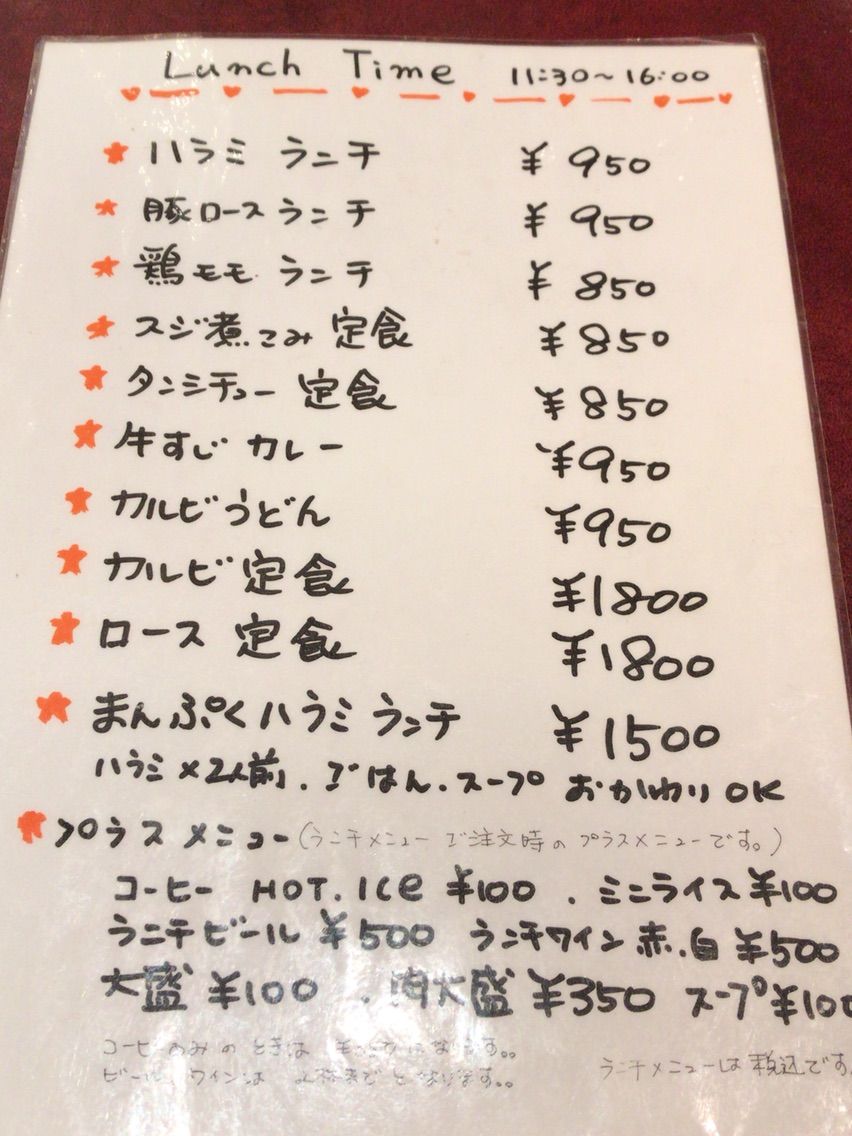 Lunch Time 11:30～16:00
ハラミ ランチ ¥950
豚ロース ランチ ¥950
鶏モモ ランチ ¥850
スジ煮こみ 定食 ¥850
タンシチュー 定食 ¥850
牛すじ カレー ¥950
カルビうどん ¥950
カルビ 定食 ¥1800
ロース 定食 ¥1800
まんぷくハラミ ランチ ¥1500
ハラミ×2人前、ごはん、スープ おかわりOK
プラスメニュー(ランチメニューご注文時のプラスメニューです。)
コーヒー HOT.ICe ¥100 . ミニライス¥100
ランチビール ¥500 ランチワイン 赤.白 ¥500
大盛 ¥100 . 肉大盛 ¥350 スープ¥100
コーヒーのみのときは になります。。
ビール、ワインは までとなります。。
ランチメニューは税込です